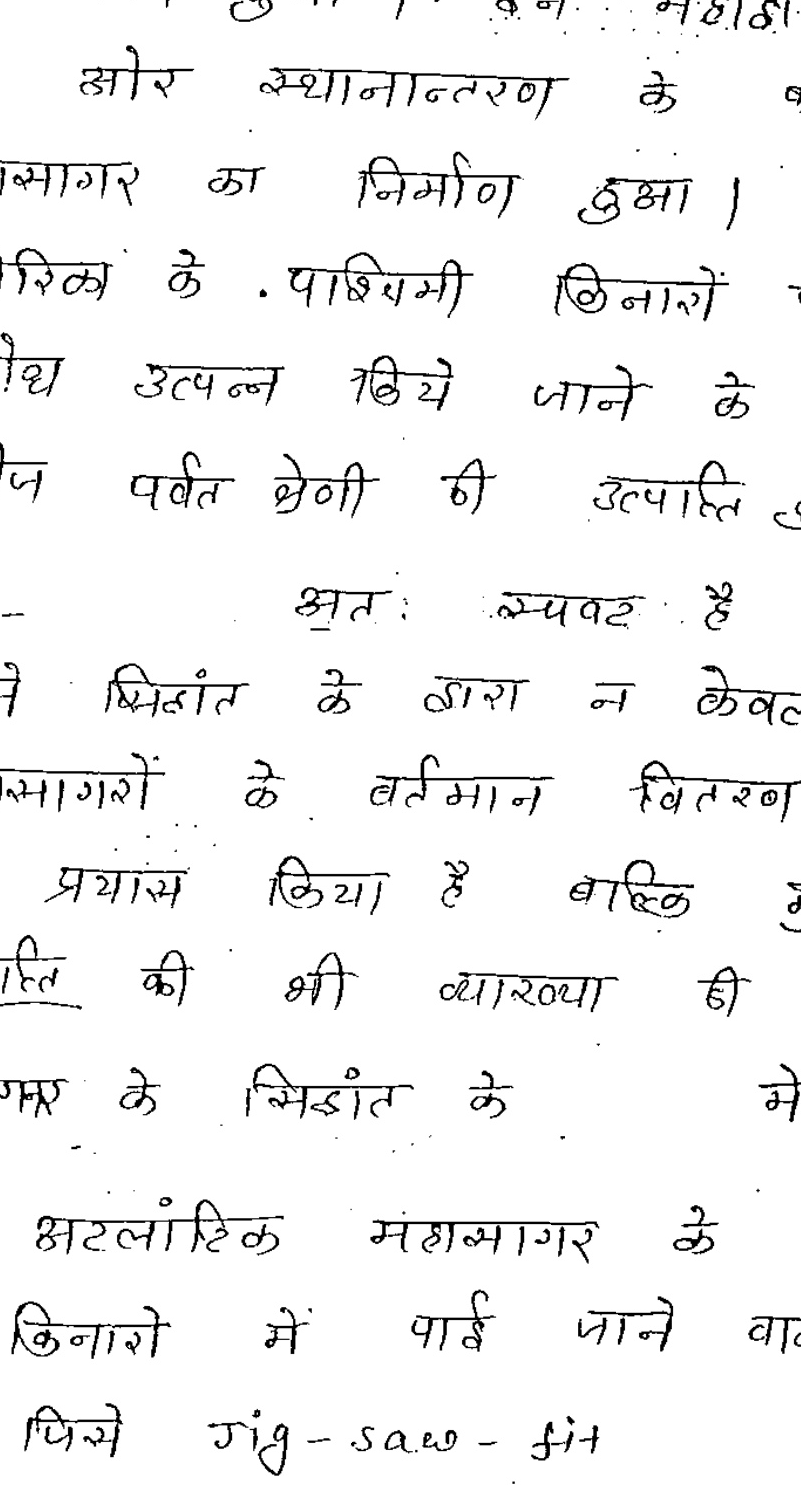 ओर स्थानान्तरण के
सागर का निर्माण हुआ।
रिका के पश्चिमी किनारों
उत्पन्न किये जाने के
पर्वत श्रेणी की उत्पत्ति
अतः स्पष्ट है
सिद्धांत के द्वारा न केवल
सागरों के वर्तमान वितरण
प्रयास किया है बल्कि
त्ति की भी व्याख्या की
के सिद्धांत के मे
अटलांटिक महासागर के
किनारो में पाई जाने वा
जिसे Jig-saw-fit